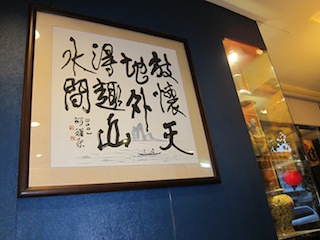 放懷天
地外
得趣山
水間